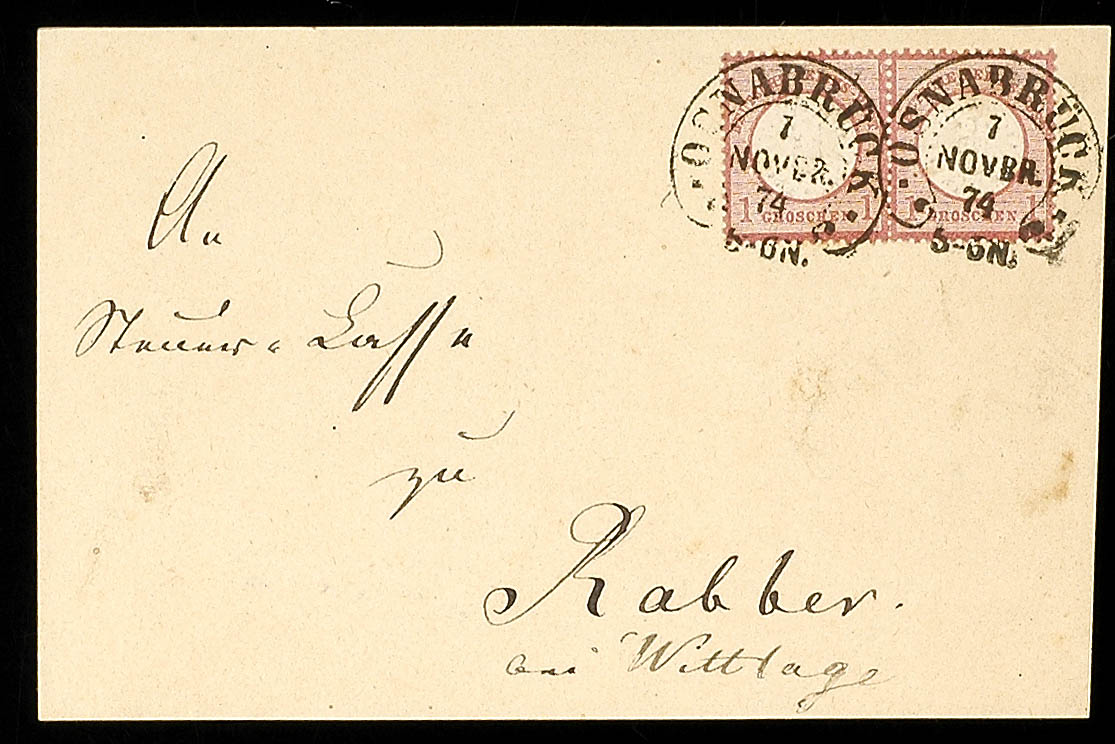 OSNABRÜCK
7
NOVBR.
74
5-6N.
1 GROSCHEN 1
OSNABRÜCK
7
NOVBR.
74
5-6N.
1 GROSCHEN 1
An
Steuer-Casse
zu
Rabber.
bei Wittlage